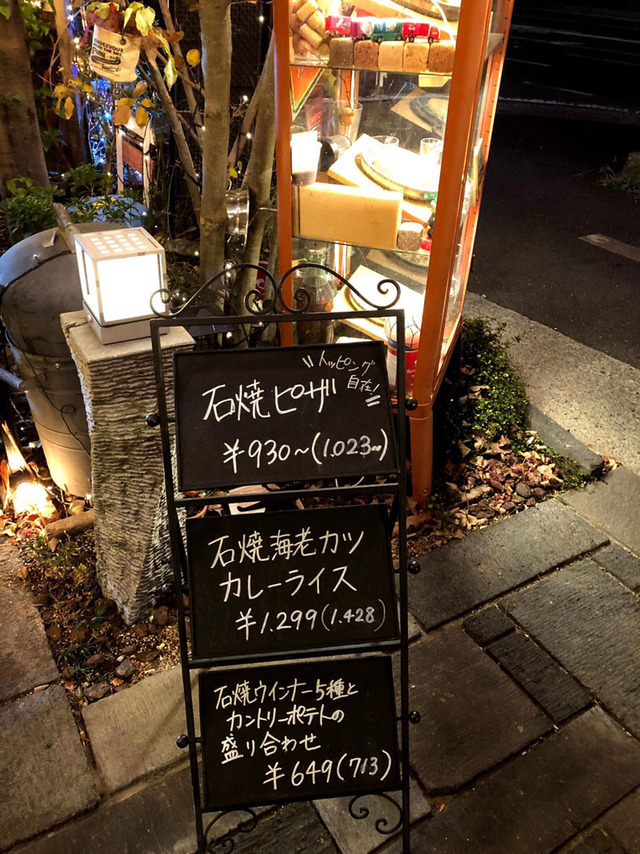 石焼ピザ
トッピング
自在!
¥930〜(1.023)
石焼海老カツ
カレーライス
¥1.299(1.428)
石焼ウインナー5種と
カントリーポテトの
盛り合わせ
¥649(713)